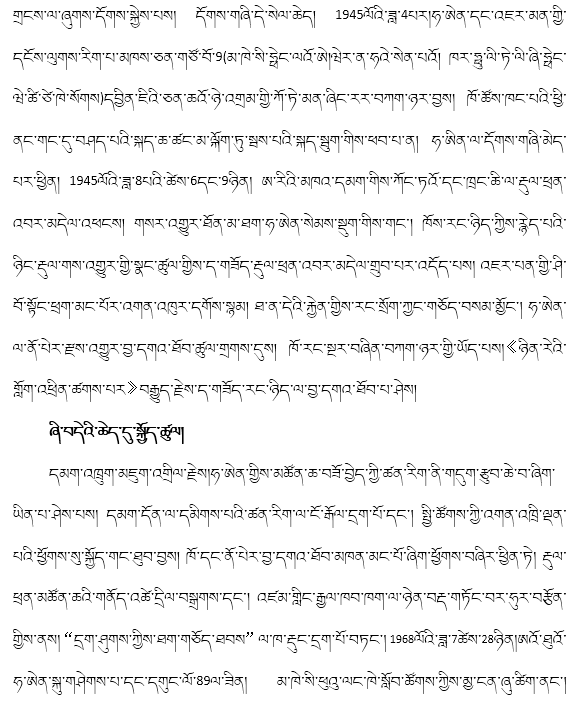 གྲངས་ལ་ཞུགས་དོགས་སྐྱེས་པས། དོགས་གཞི་དེ་སེལ་ཆེད། 1945ལོའི་ཟླ་4པར།ཧ་ཨེན་དང་འཇར་མན་གྱི་
དངོས་ལུགས་རིག་པ་མཁས་ཅན་གཙོ་བོ་9(མ་ཁེ་སི་ཧྥེང་ལའོ་ཨེ།ཝེར་ན་ཧའེ་སེན་པའོ། ཁར་ཧྥུ་ལི་ཏེ་ལི་ཞི་ཧྥེང་
ཝེ་ཚི་ཙེ་ཁེ་སོགས)དབྱིན་ཇིའི་ཅན་ཆའོ་ཉེ་འགྲམ་གྱི་ཀོ་ཏེ་མན་ཞིང་རར་བཀག་ཉར་བྱས། ཁོ་ཚོས་ཁང་པའི་ཕྱི་
ནང་གང་དུ་བཤད་པའི་སྐད་ཆ་ཚང་མ་ལྐོག་ཏུ་སྦས་པའི་སྐད་སྦུག་གིས་ཕབ་པ་ན། ཧ་ཨིན་ལ་དོགས་གཞི་མེད་
པར་ཕྱིན། 1945ལོའི་ཟླ་8པའི་ཚེས་6དང་9ཉིན། ཨ་རིའི་མཁའ་དམག་གིས་ཀོང་ཏའོ་དང་ཁྲང་ཆི་ལ་རྡུལ་ཕྲན་
འབར་མདེལ་འཕངས། གསར་འགྱུར་ཐོན་མ་ཐག་ཧ་ཨེན་སེམས་སྡུག་གིས་གང་། ཁོས་རང་ཉིད་ཀྱིས་རྙེད་པའི་
ཉིང་རྡུལ་གས་འགྱུར་གྱི་སྣང་ཚུལ་གྱིས་ད་གཟོད་རྡུལ་ཕྲན་འབར་མདེལ་གྲུབ་པར་འདོད་པས། འཇར་པན་གྱི་ཤི་
བོ་སྟོང་ཕྲག་མང་པོར་འགན་འཁུར་དགོས་སྙམ། ཐ་ན་དེའི་རྐྱེན་གྱིས་རང་སྲོག་ཀྱང་གཅོད་བསམ་མྱོང་། ཧ་ཨེན་
ལ་ནོ་པེར་རྫས་འགྱུར་བྱ་དགའ་ཐོབ་ཚུལ་གྲགས་དུས། ཁོ་རང་སྔར་བཞིན་བཀག་ཉར་གྱི་ཡོད་པས།《ཉིན་རེའི་
གློག་འཕྲིན་ཚགས་པར》བརྒྱུད་རྗེས་ད་གཟོད་རང་ཉིད་ལ་བྱ་དགའ་ཐོབ་པ་ཤེས།
ཞི་བདེའི་ཆེད་དུ་སྐྱོད་ཚུལ།
དམག་འཁྲུག་མཇུག་འགྲིལ་རྗེས།ཧ་ཨེན་གྱིས་མཚོན་ཆ་བཟོ་བྱེད་ཀྱི་ཚན་རིག་ནི་གདུག་རྩུབ་ཆེ་བ་ཞིག་
ཡིན་པ་ཤེས་པས། དམག་དོན་ལ་དམིགས་པའི་ཚན་རིག་ལ་ངོ་རྒོལ་དྲག་པོ་དང་། སྤྱི་ཚོགས་ཀྱི་འགན་འཁྲི་ལྡན་
པའི་ཕྱོགས་སུ་སྐྱོད་གང་ཐུབ་བྱས། ཁོ་དང་ནོ་པེར་བྱ་དགའ་ཐོབ་མཁན་མང་པོ་ཞིག་ཕྱོགས་བཞིར་ཕྱིན་ཏེ། རྡུལ་
ཕྲན་མཚོན་ཆའི་གནོད་འཚེ་དྲིལ་བསྒྲགས་དང་། འཛམ་གླིང་རྒྱལ་ཁབ་ཁག་ལ་ཉེན་བརྡ་གཏོང་བར་ཧུར་བརྩོན་
གྱིས་ནས། “དྲག་ཤུགས་ཀྱིས་ཐག་གཅོད་ཐབས” ལ་ཁ་རྡུང་དྲག་པོ་བཏང་། 1968ལོའི་ཟླ་7ཚེས་28ཉིན།ཨའོ་ཐུའོ་
ཧ་ཨེན་སྐུ་གཤེགས་པ་དང་དགུང་ལོ་89ལ་ཟིན། མ་ཁེ་སི་ཕུའུ་ལང་ཁེ་སློབ་ཚོགས་ཀྱིས་མྱ་ངན་ཞུ་ཚིག་ནང་།